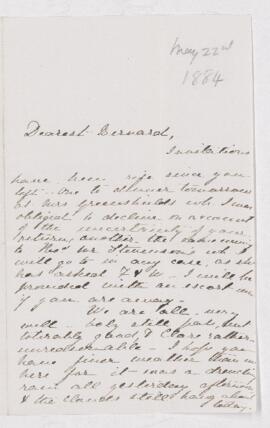 May 22nd
1884
Dearest Bernard,
Invitations
have been rife since you
left. One to dinner tomorrow
at Mrs Greenshields wh. I was
obliged to decline on account
of the uncertainty of your
return, another the same
to Mrs wh. I
will go to in any case, as she
has asked F & W. I will be
provided with an escort even
if you are away.
We are all very
well. still pale, but
tolerably good, & Clare rather
unreasonable. I hope you
have finer weather than us
here for it was a drenching
rain all yesterday afternoon
& the clouds still hang about
today.